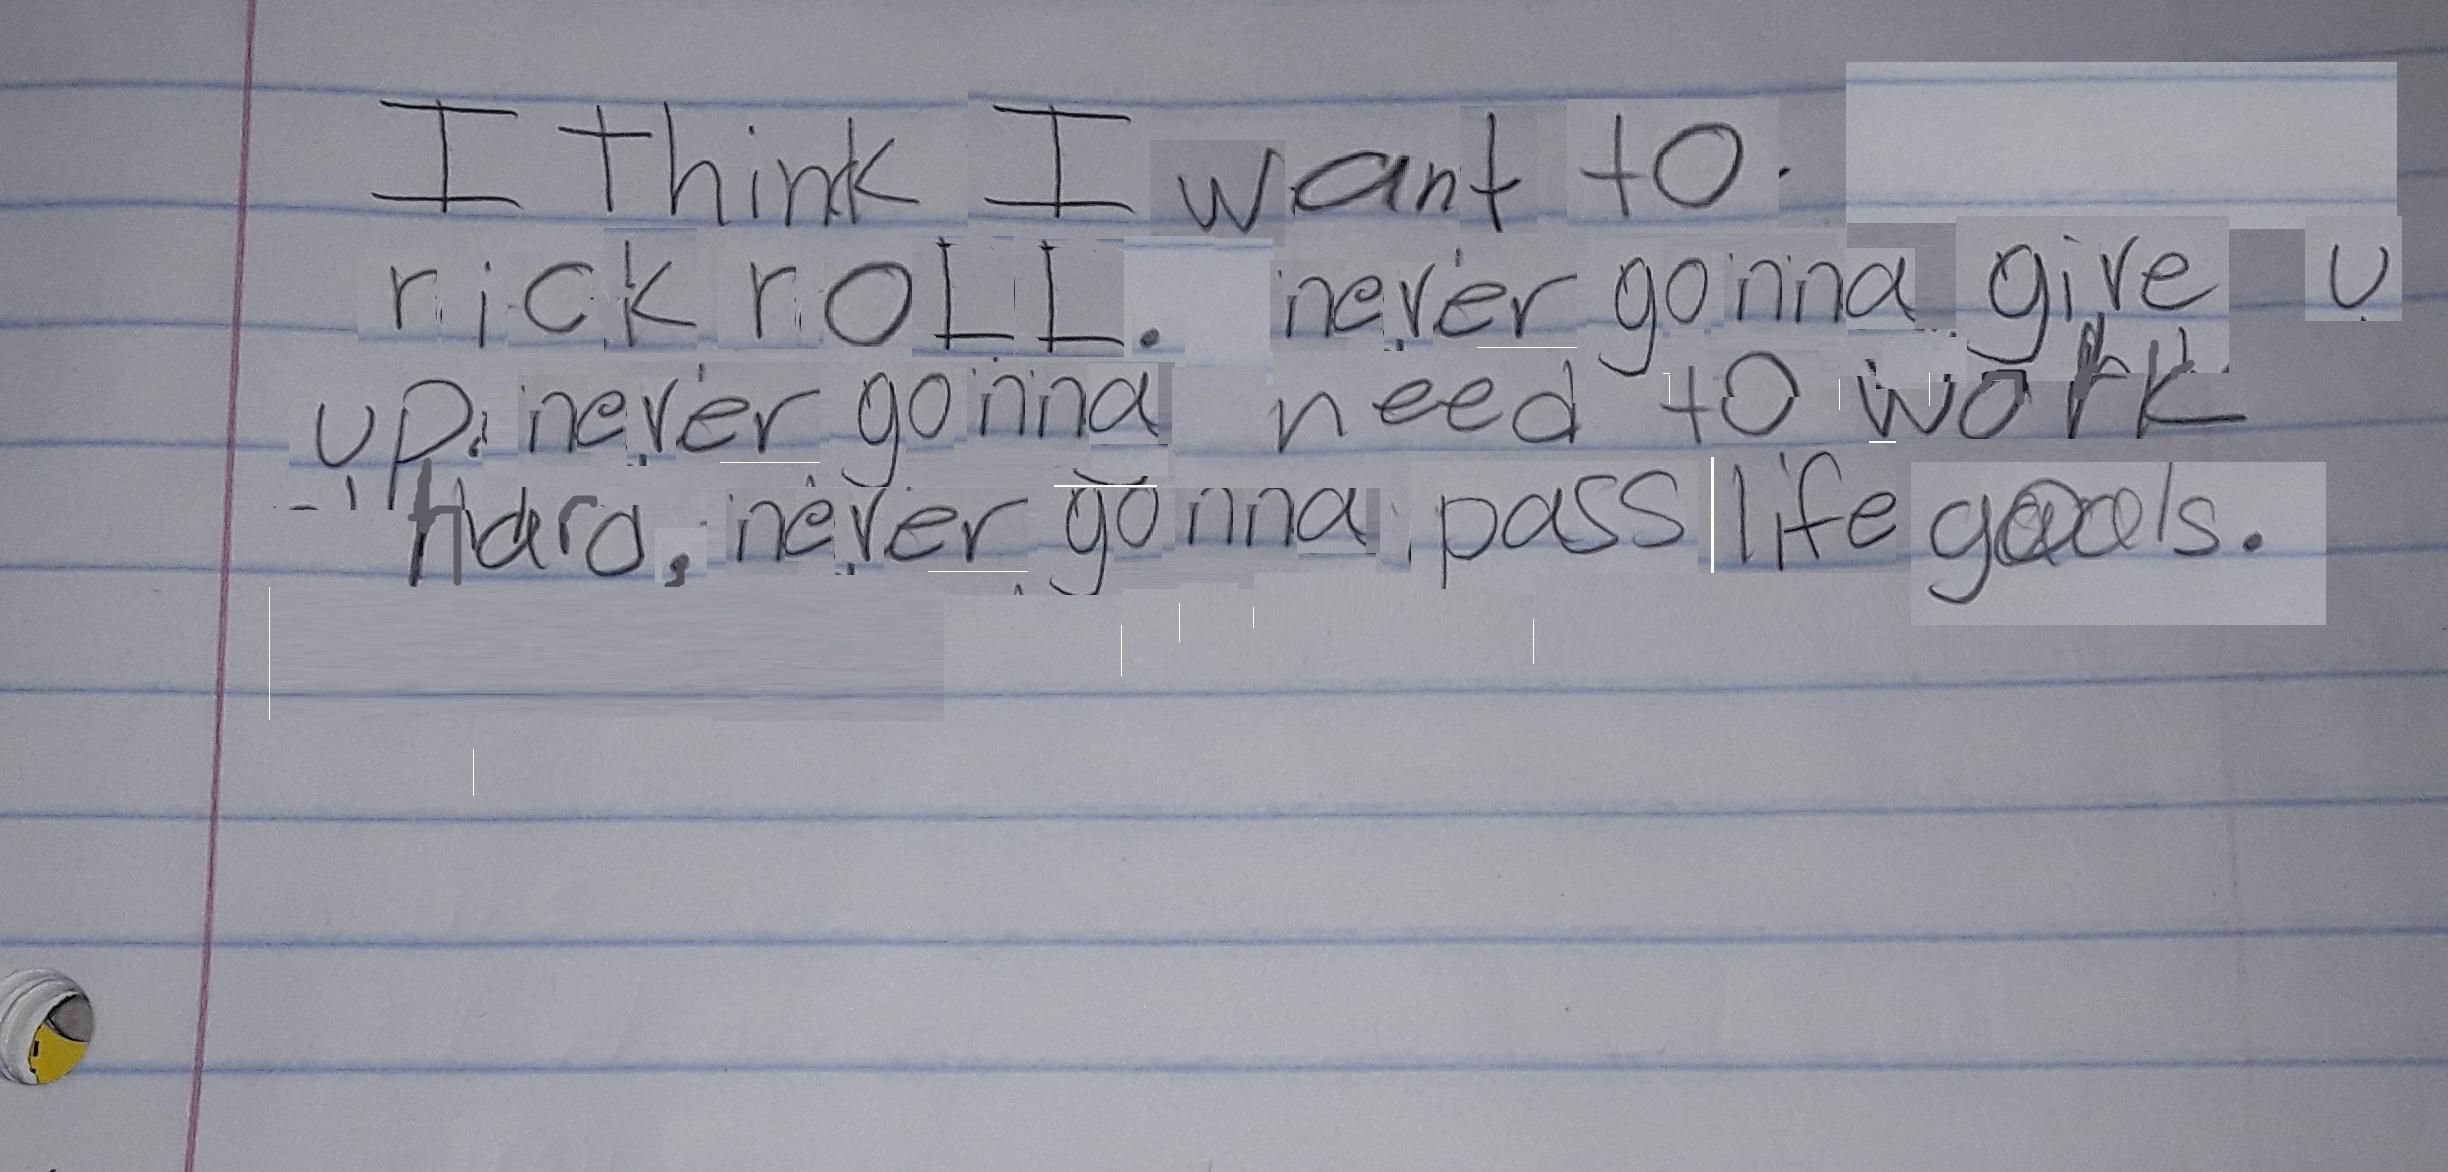 I think I want to.
rick roLL. never gonna give U
up. never gonna need to work
hard, never gonna pass life goals.